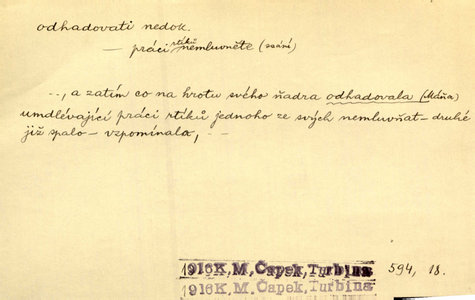 odhadovati nedok.
— práci rtíků nemluvněte (ssání)
– –, a zatím co na hrotu svého ňadra odhadovala (Máňa)
umdlévající práci rtíků jednoho ze svých nemluvňat – druhé
již spalo – vzpomínala, – –
1916 K. M. Čapek, Turbina 594, 18.
1916 K. M. Čapek, Turbina